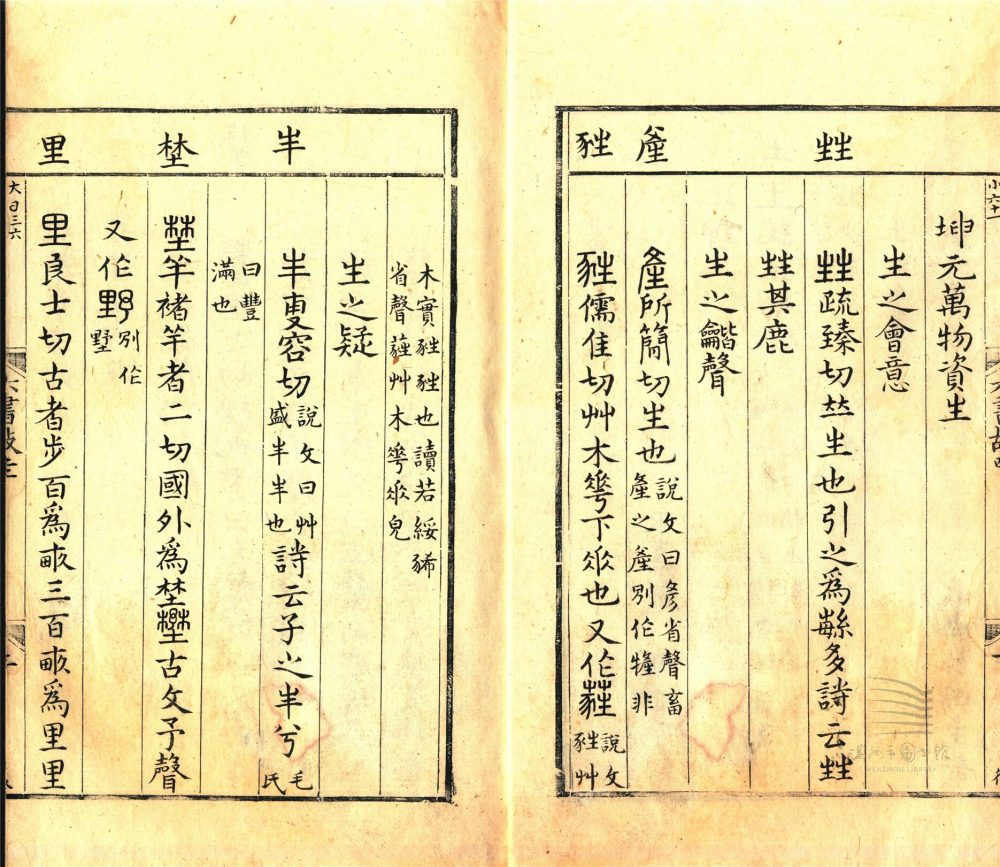 甡
產
㽔
坤元萬物資生
生之會意
甡疏臻切竝生也引之為緐多詩云甡
甡其鹿
生之龤聲
產所簡切生也說文曰彦省聲畜
產之產別作㹌非
㽔儒隹切艸木㝬下𠂹也又作蕤說文
㽔艸
木實㽔㽔也讀若綏豨
省聲蕤艸木㝬𠂹皃
生之疑
半
埜
里
丰叓容切說文曰艸
盛丰丰也詩云子之丰兮毛
氏
曰豐
滿也
埜羊褚羊者二切國外為埜壄古文予聲
又作野別作
墅
里良士切古者步百為畞三百畞為里里
大曰三六
六書故
WENZHOU LIBRARY